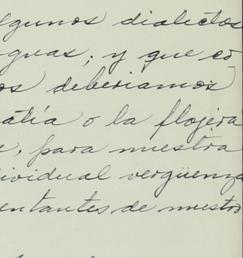 lgunos dialectos
guas; y que co
os deberiamos
atía o la flojera
e, para nuestra
dividual vergüenza
entantes de nuestr